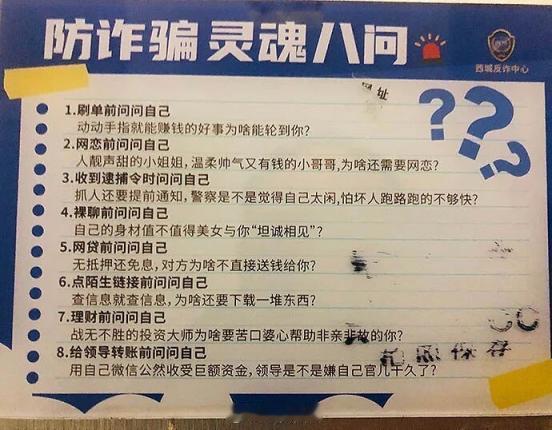 防诈骗灵魂八问
西城反诈中心
网址
???
1.刷单前问问自己
动动手指就能赚钱的好事为啥能轮到你?
2.网恋前问问自己
人靓声甜的小姐姐，温柔帅气又有钱的小哥哥,为啥还需要网恋?
3.收到逮捕令时问问自己
抓人还要提前通知，警察是不是觉得自己太闲,怕坏人跑路跑的不够快?
4.裸聊前问问自己
自己的身材值不值得美女与你“坦诚相见”?
5.网贷前问问自己
无抵押还免息，对方为啥不直接送钱给你?
6.点陌生链接前问问自己
查信息就查信息，为啥还要下载一堆东西?
7.理财前问问自己
战无不胜的投资大师为啥要苦口婆心帮助非亲非故的你?
8.给领导转账前问问自己
用自己微信公然收受巨额资金，领导是不是嫌自己官儿干久了?
拍照保存